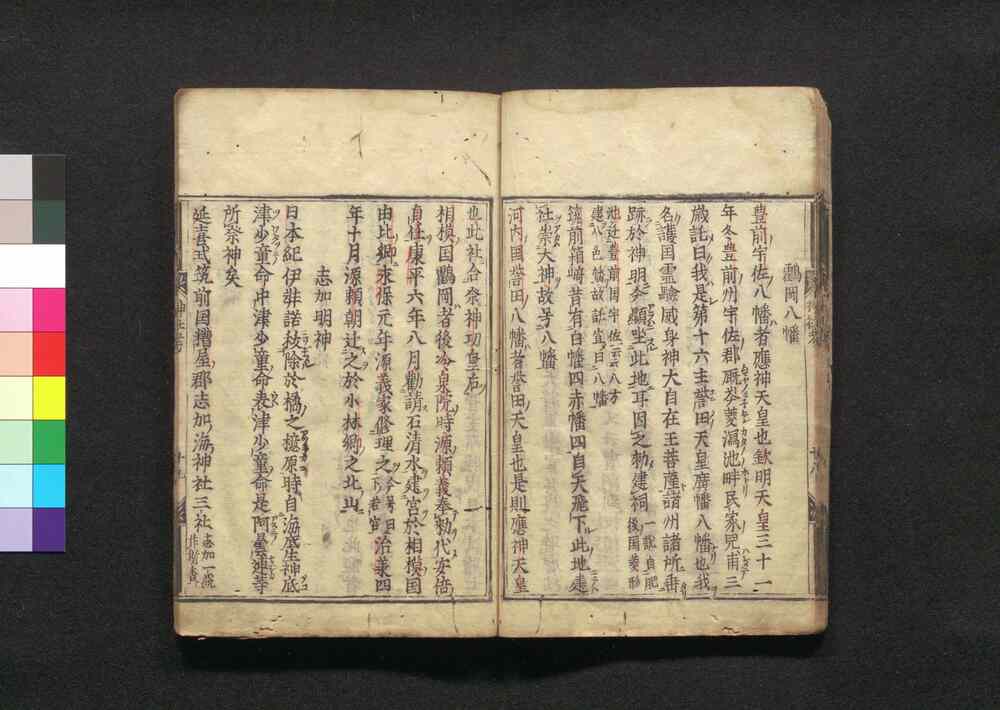 鸖岡八幡
豊前宇佐八幡者應神天皇也欽明天皇三十一
年冬豊前州宇佐郡厩峯菱瀉池畔民家児甫三
歳託曰我是第十六主誉田天皇廣幡八幡也我
名護国霊驗威身神大自在王菩薩諸州諸所垂
跡於神明今顯坐此地耳因之勅建祠一説自肥後国菱形
池辺豊前国宇佐云云八方
建八色幡故託宣曰八幡
筑前箱﨑昔有白幡四赤幡四自天飛下此地建
社崇大神故号八幡
河内国誉田八幡者誉田天皇也是則應神天皇
也此社合祭神功皇后
相模国鸖岡者後冷泉院時源頼義奉勅代安倍
貞任康平六年八月勸請石清水建宮於相模国
由比郷永保元年源義家修理之今号曰下若宮治義四
年十月源頼朝辻之於小林郷之北山
志加明神
日本紀伊弉諾祓除於橘之檍原時自海底生神底
津少童命中津少童命表津少童命是阿曇連等
所祭神矣
延喜式筑前国糟屋郡志加海神社三社志加一説